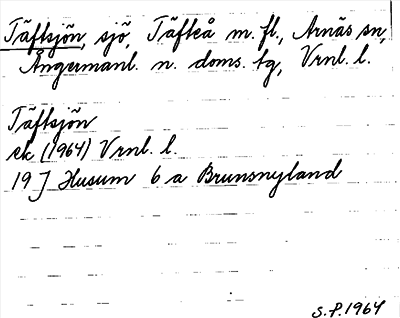 Täftsjön, sjö, Täfteå m. fl., Arnäs sn,
Ångermanl. n. doms. tg, Vrnl. l.
Täftsjön
ek (1964) Vrnl. l.
19 J Husum 6 a Brunsnyland
S.P. 1964